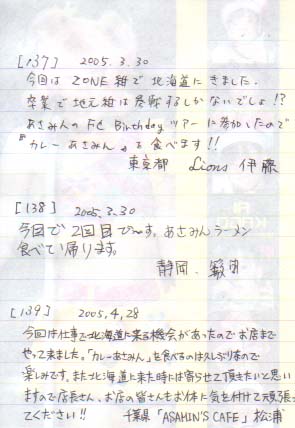 [137] 2005.3.30
今回は ZONE 雑で 北海道に きました.
卒業で地元雑は参戦するしかないでしょ!?
あさみんの FC Birthday ツアーに参加したので
『カレーあさみん』を 食べます!!
東京都 Lions 伊藤
[138] 2005.3.30
今回で2回目で〜す。あさみんラーメン
食べてい帰ります。
静岡.
[139] 2005,4,28
今回は仕事で北海道に来る機会があったのでお店まで
やって来ました。「カレーあさみん」を食べるのは久しぶりなので
楽しみです。また北海道に来た時には寄らせて頂きたいと思い
ますので店長さん、お店の皆さんもお体に気を付けて頑張っ
てください!! 千葉県「ASAMIN'S CAFE」松浦